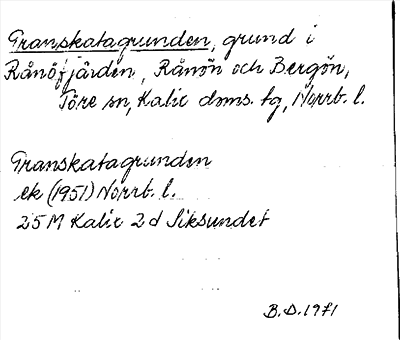 Granskatagrunden, grund i
Rånöfjärden, Rånön och Bergön,
Töre sn, Kalix doms. tg, Norrb. l.
Granskatagrunden
ek (1951) Norrb. l.
25M Kalix 2d Siksundet
B.D. 1971